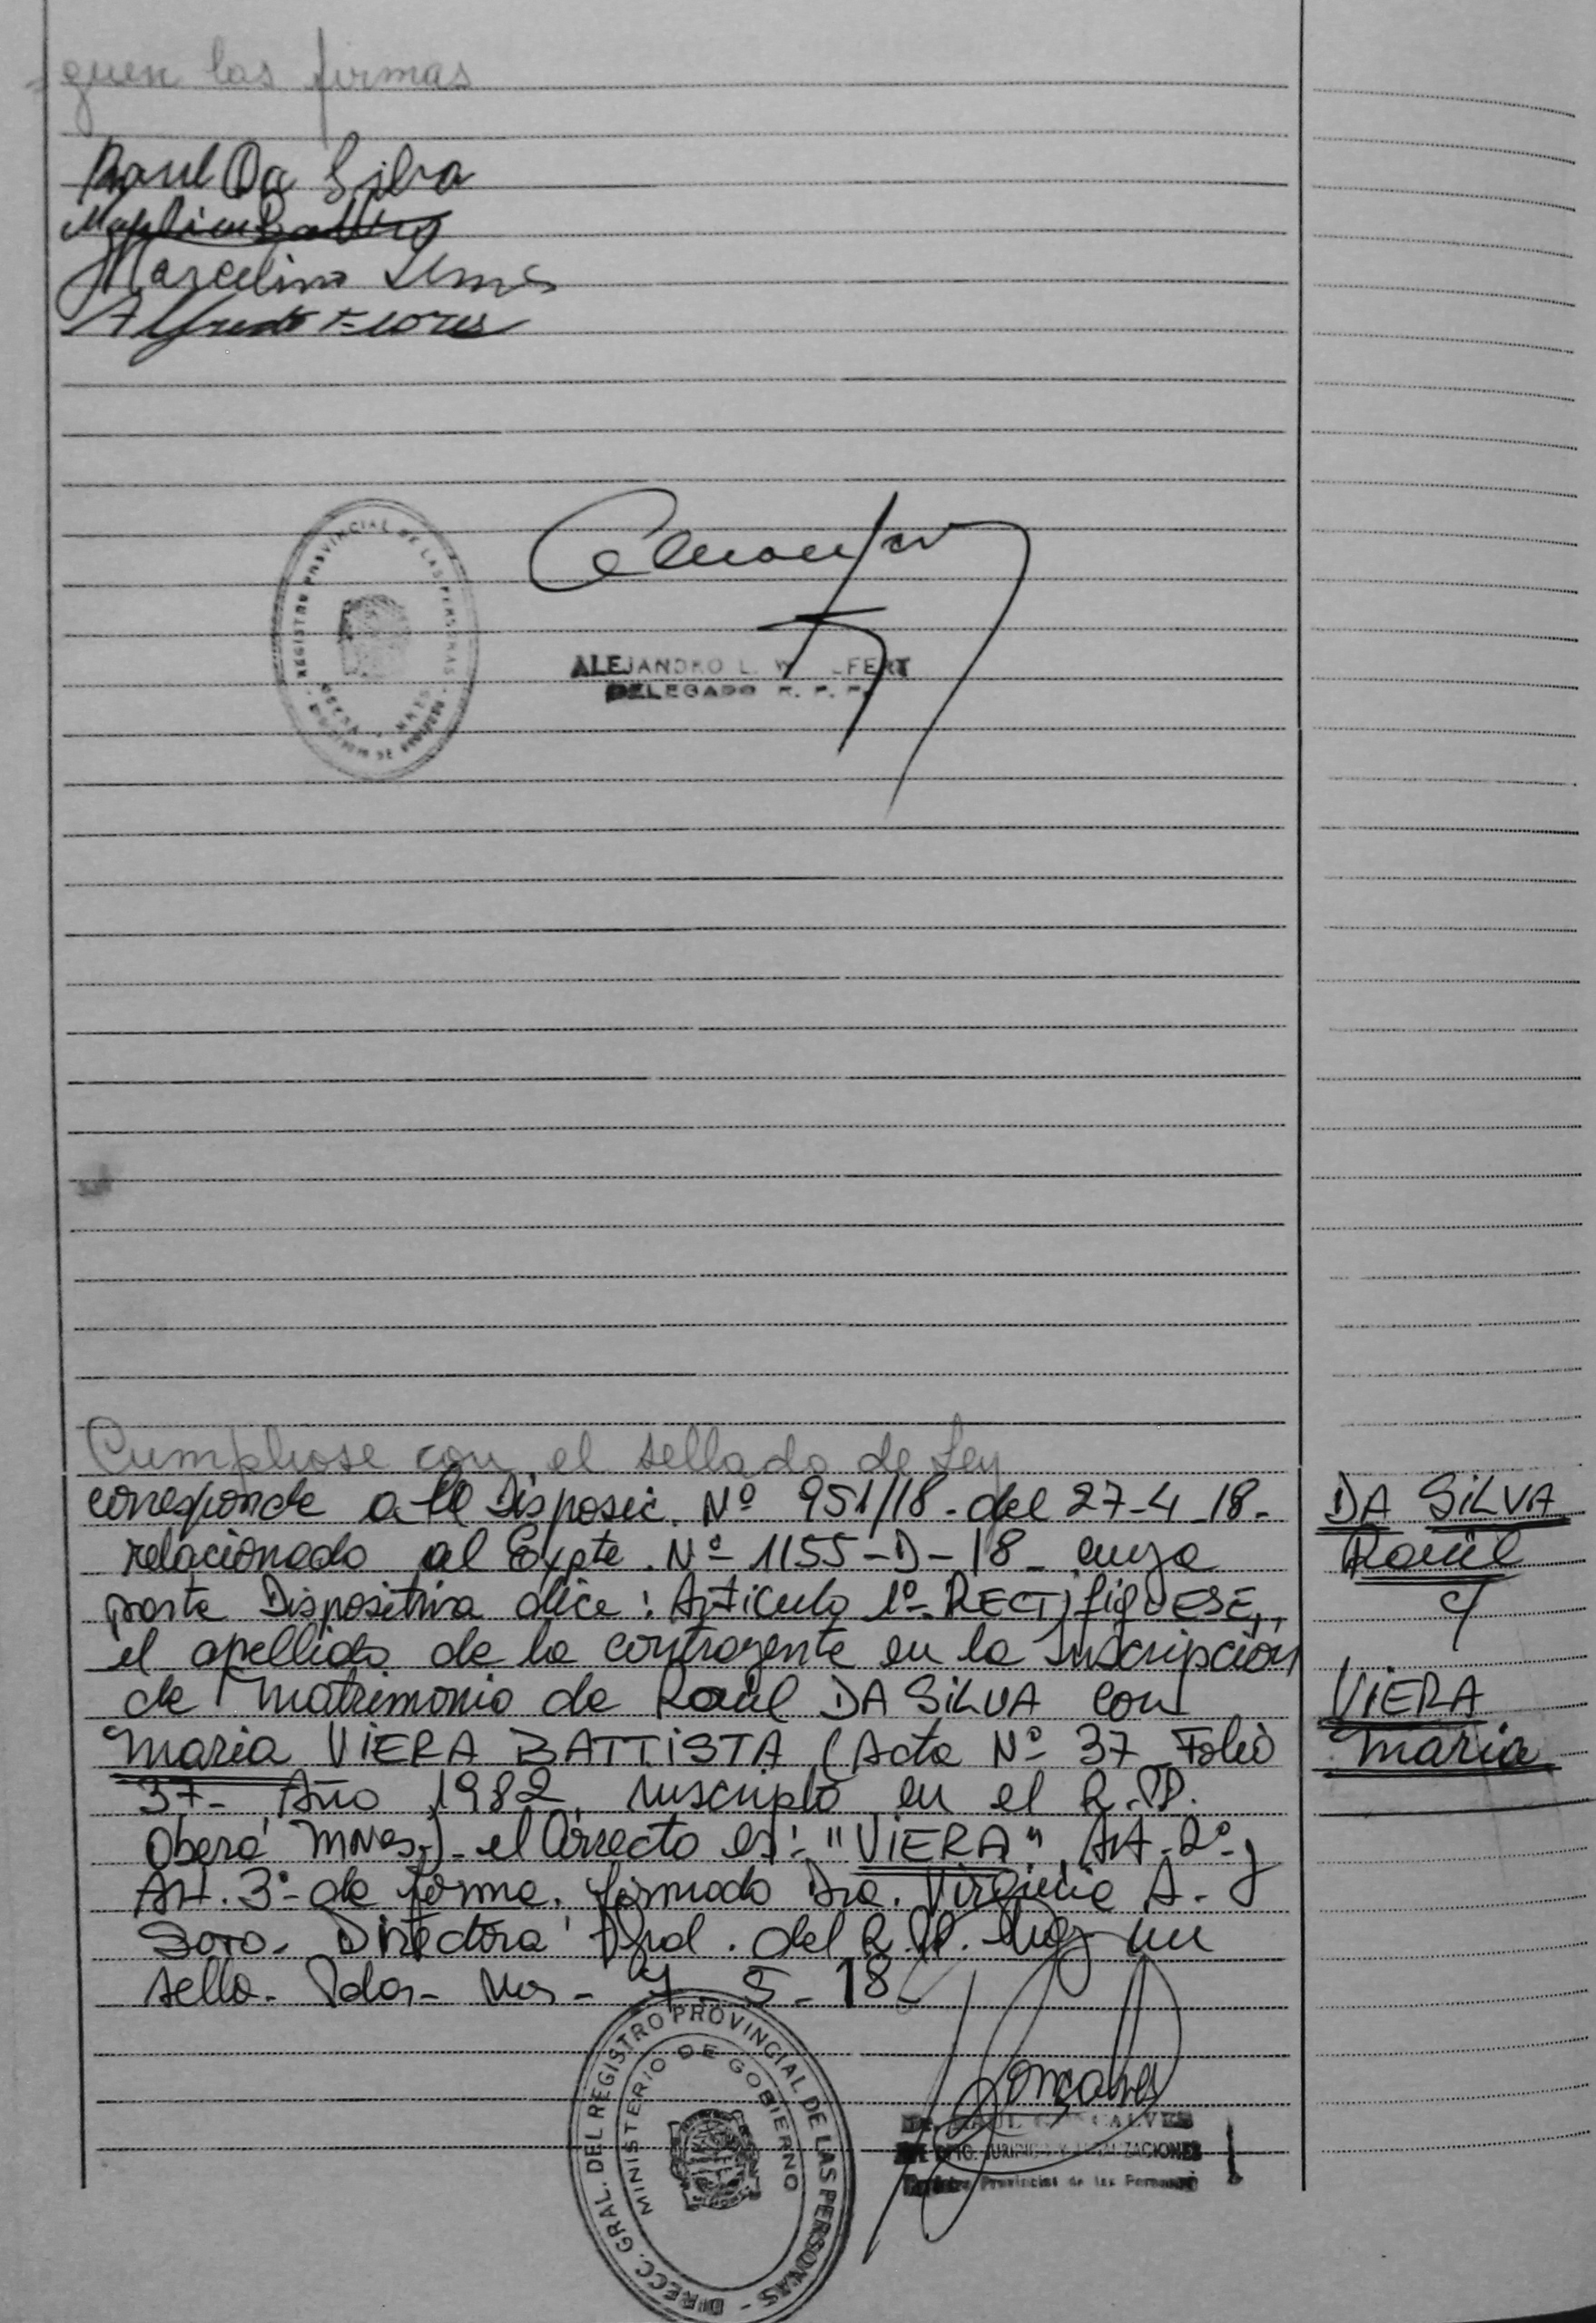 guen las firmas
Raul Da Silva
Marcelino Lemes
Alfredo Flores
REGISTRO PROVINCIAL DE LAS PERSONAS
ALEJANDRO L. W LFERT
DELEGADO R. P. P.
Cumpliose con el sellado de Ley
corresponde a la Disposic. Nº 951/18 - del 27-4-18-
relacionado al Expte. Nº 1155-D-18- cuya
parte Dispositiva dice: Artículo 1º- RECTifiqUESE,
el apellido de la contrayente en la Inscripción
de Matrimonio de Raúl DA SiLVA con
Maria ViERA BATTiSTA (Acta Nº 37 Folio
37- Año 1982 inscripto en el R.P.P.
Oberá Mnes.)- el Correcto es: "ViERA", Art-2º- y
Art. 3º- de forma. firmado Dra. Virginia A.
Directora Gral. del R.P.P. Hay un
sello. Pdas- Mes- 7-5-18
DA SiLVA
Raúl
c/
ViERA
Maria
DIRECC. GRAL. DEL REGISTRO PROVINCIAL DE LAS PERSONAS -
MINISTERIO DE GOBIERNO
Gonçalves
Provincial de las Personas